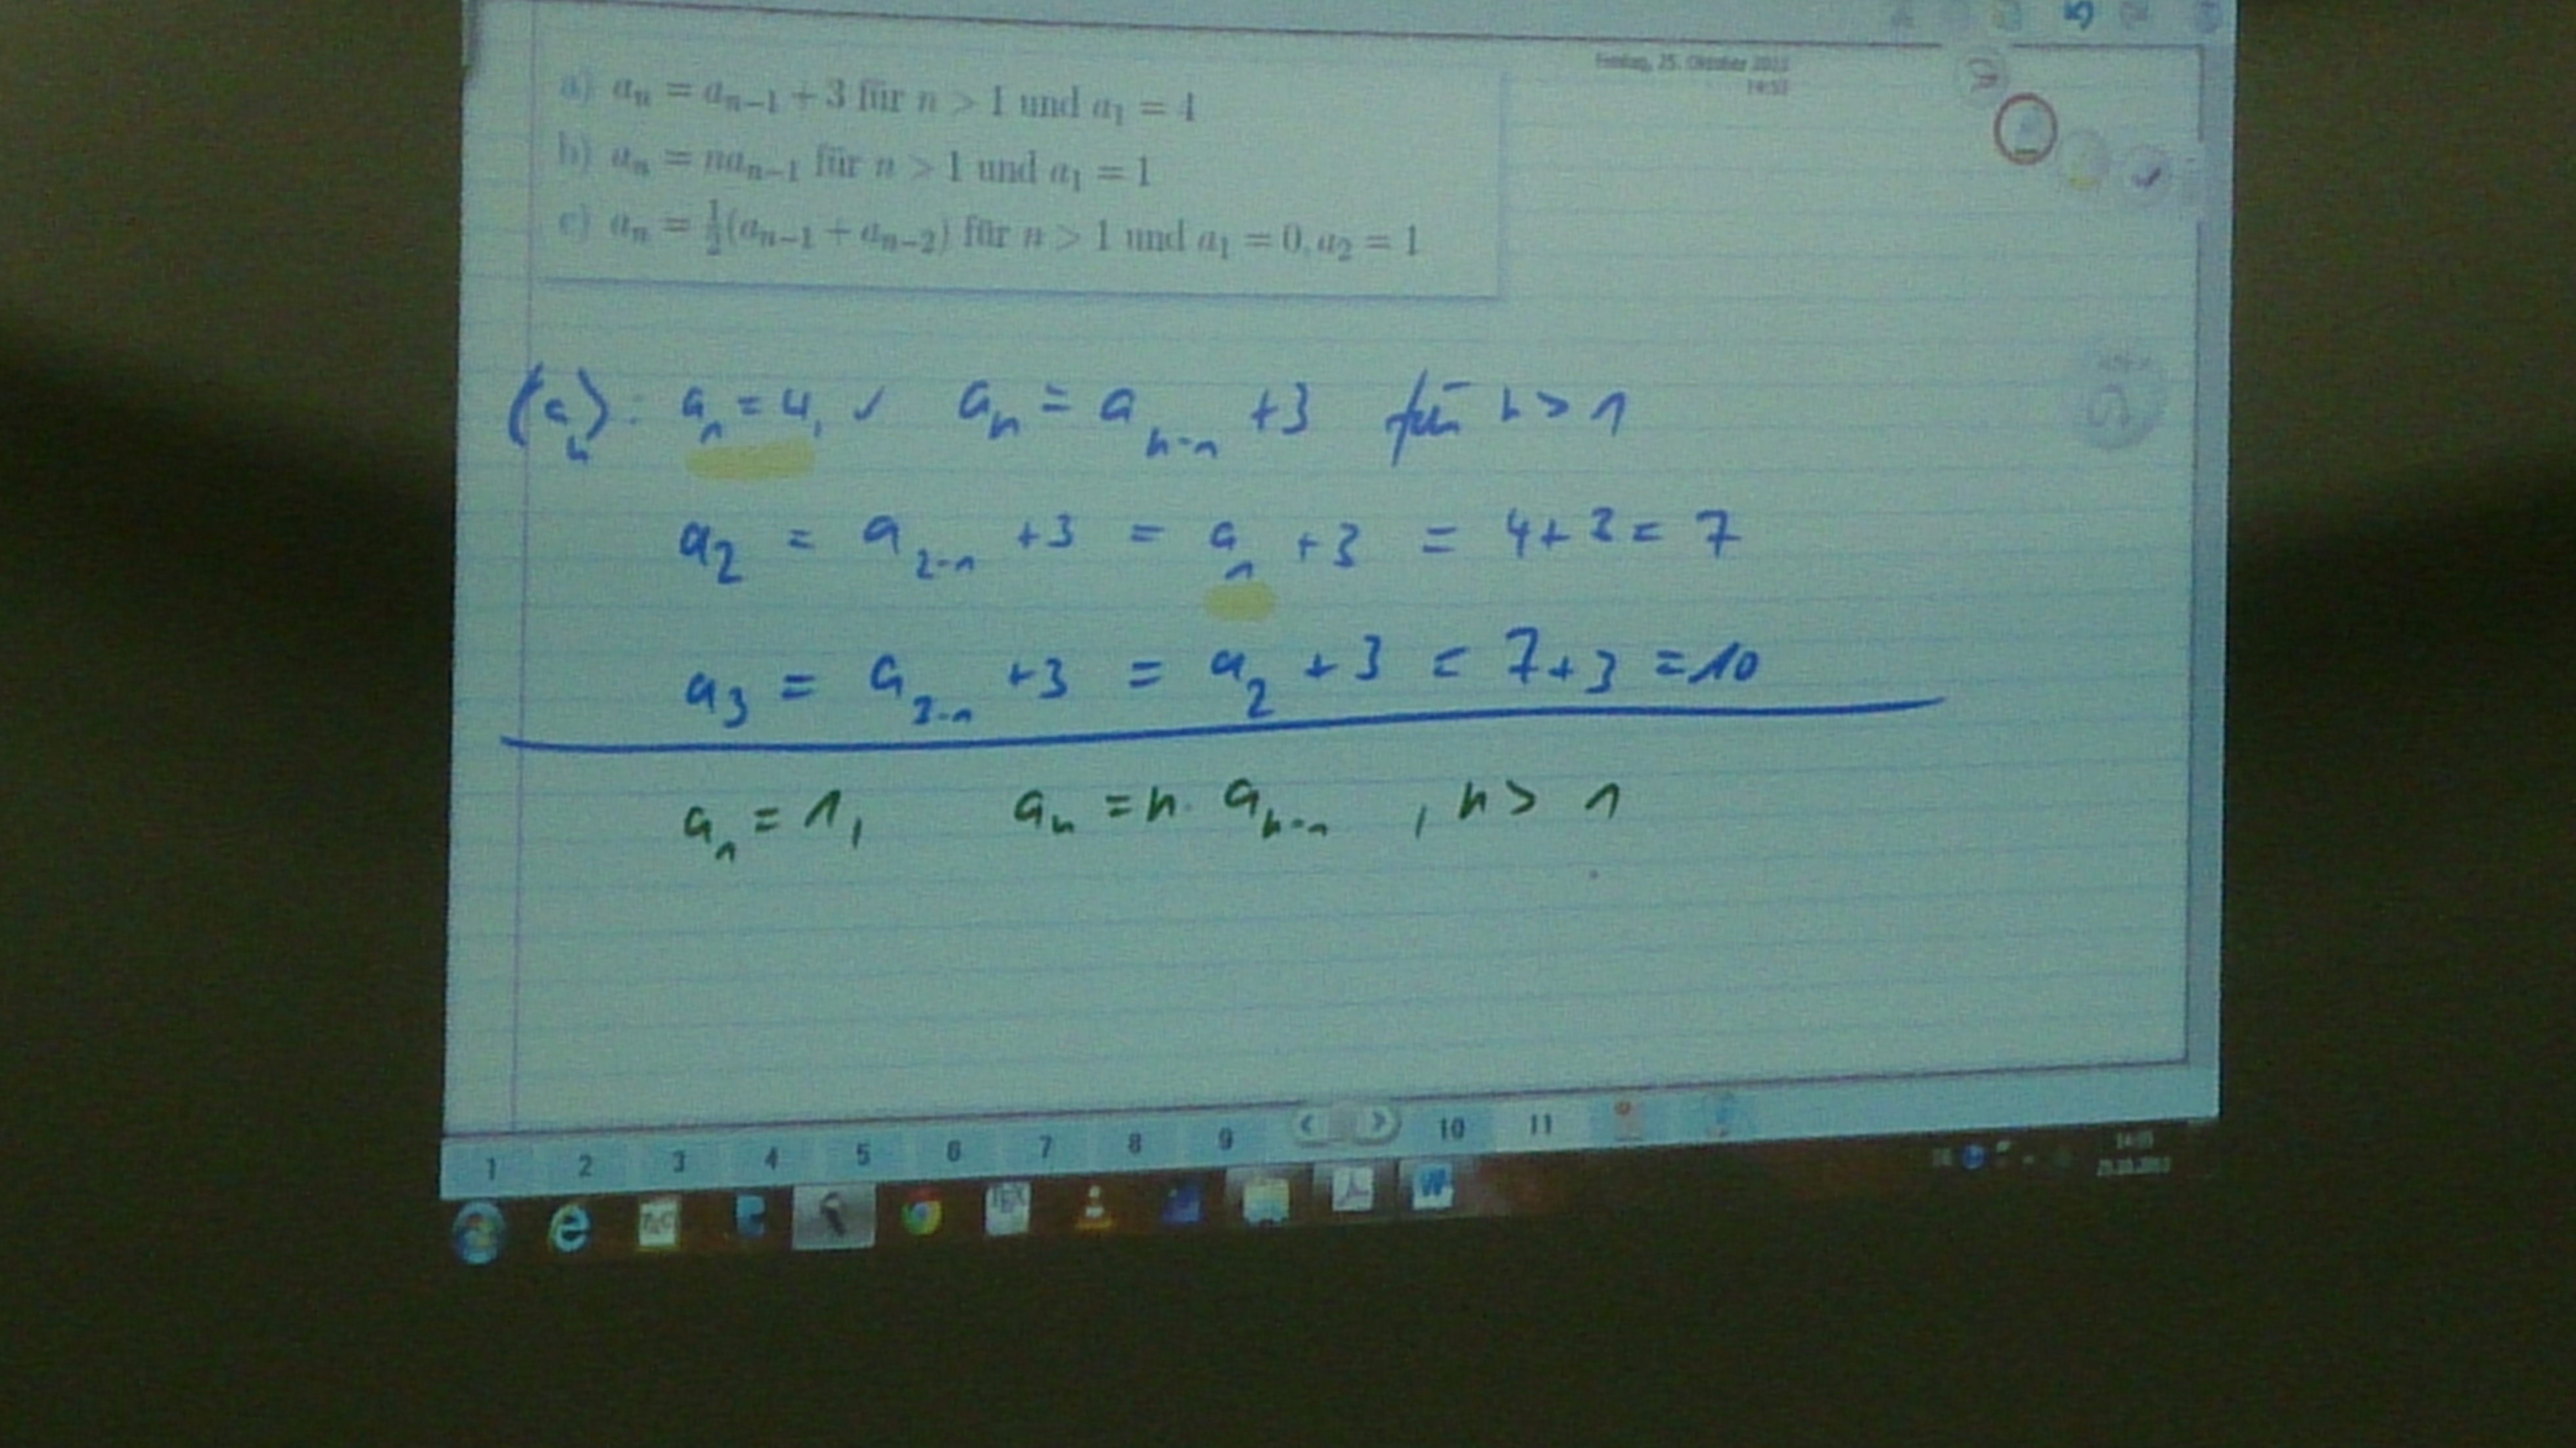 a) aₙ = aₙ₋₁ + 3 für n > 1 und a₁ = 4
b) aₙ = naₙ₋₁ für n > 1 und a₁ = 1
c) aₙ = ½(aₙ₋₁ + aₙ₋₂) für n > 1 und a₁ = 0, a₂ = 1
Freitag, 25. Oktober
(aₙ): a₁ = 4, ✓ aₙ = aₙ₋₁ + 3 für n > 1
a₂ = a₂₋₁ + 3 = a₁ + 3 = 4 + 3 = 7
a₃ = a₃₋₁ + 3 = a₂ + 3 = 7 + 3 = 10
a₁ = 1, aₙ = n · aₙ₋₁ , n > 1
1 2 3 4 5 6 7 8 9 < > 10 11